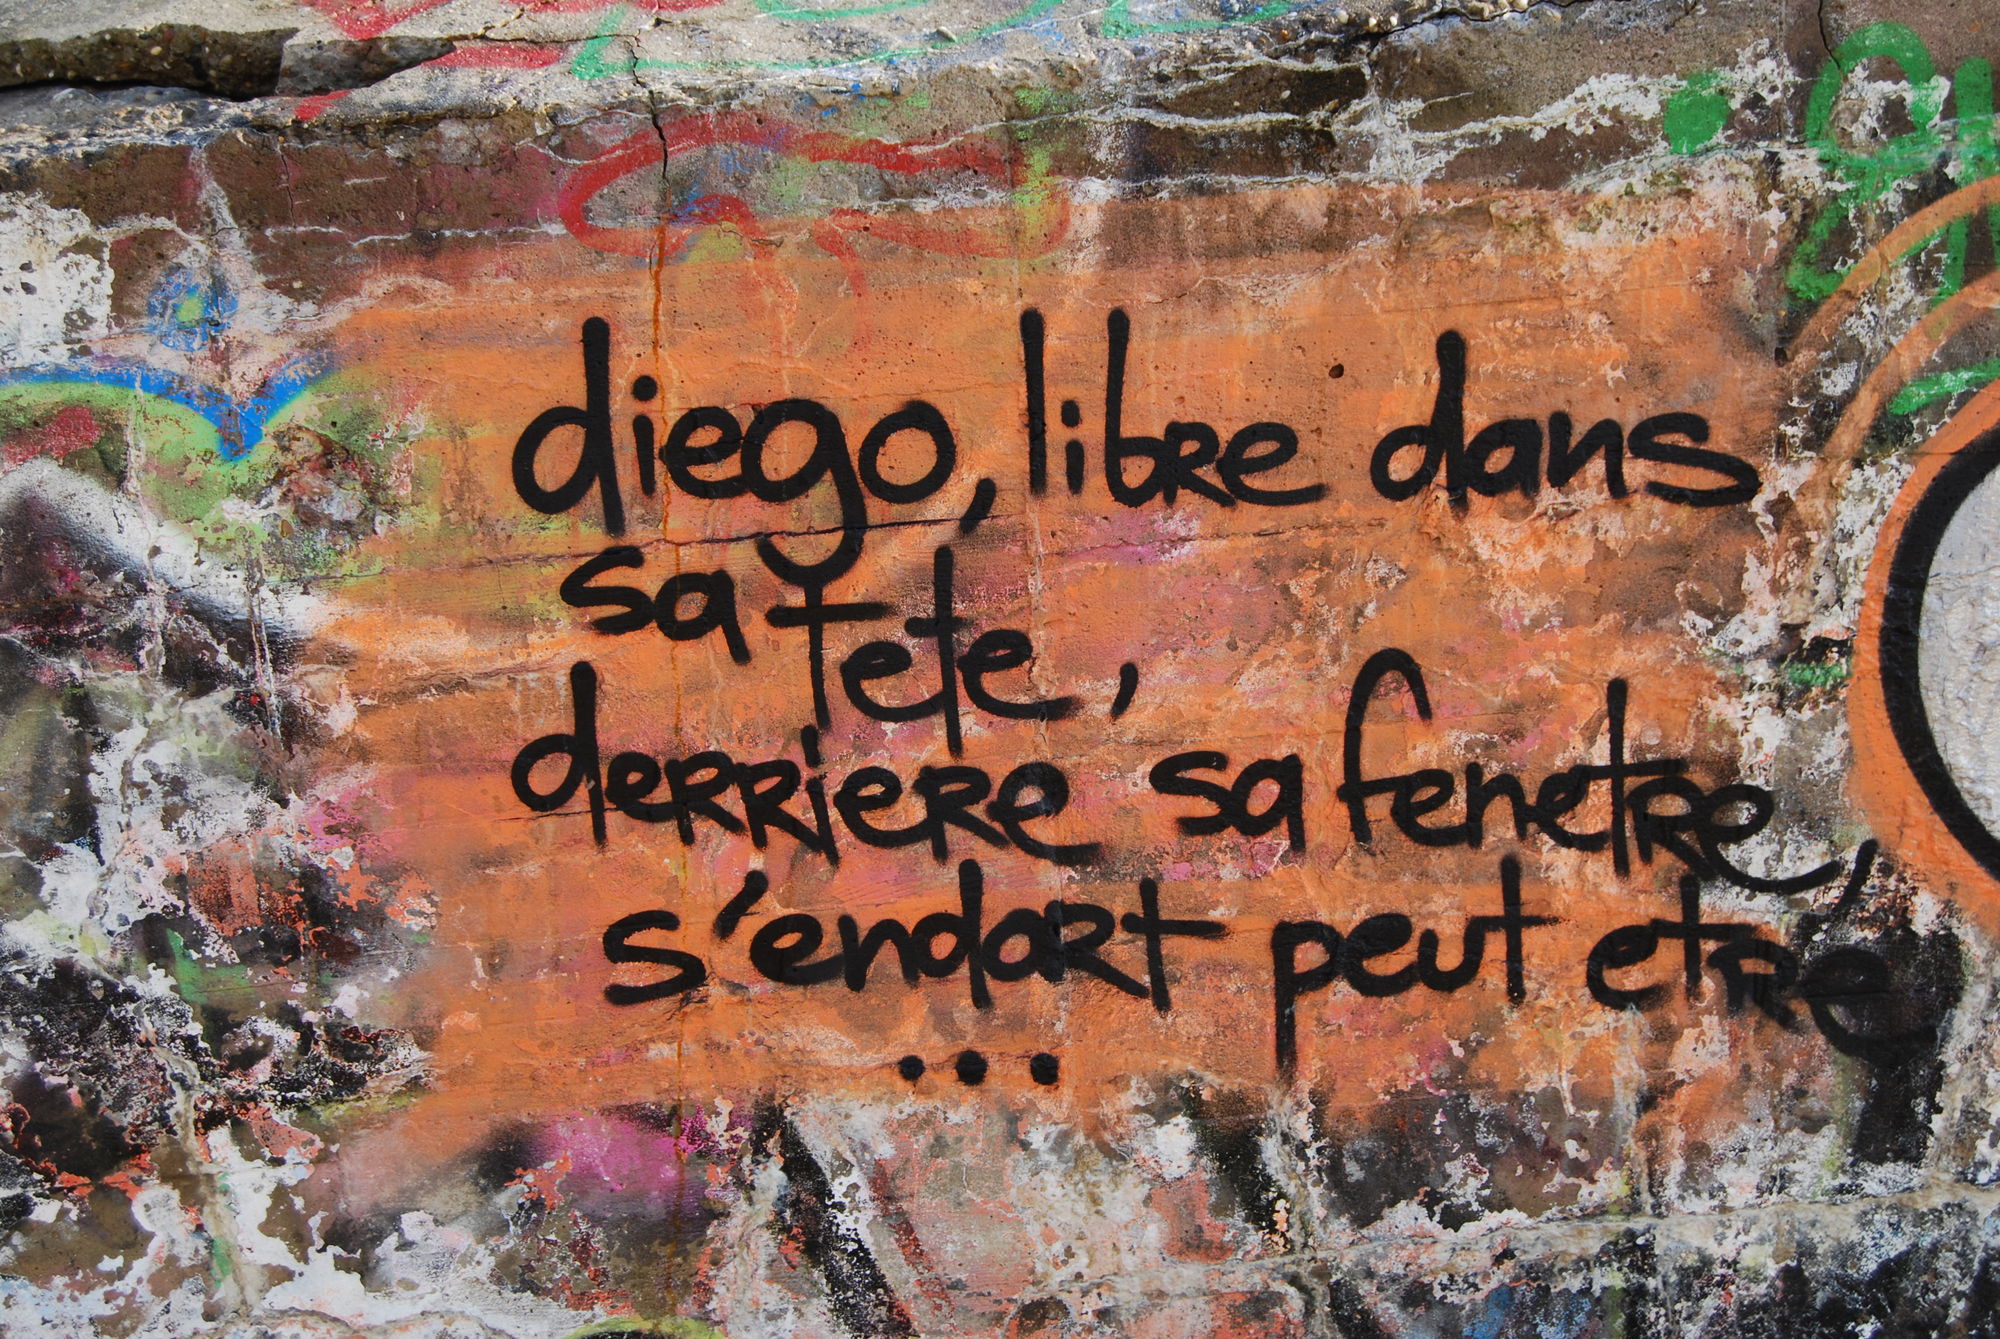 diego, libre dans
sa tete,
derriere sa fenetre,
s'endort peut etre
...